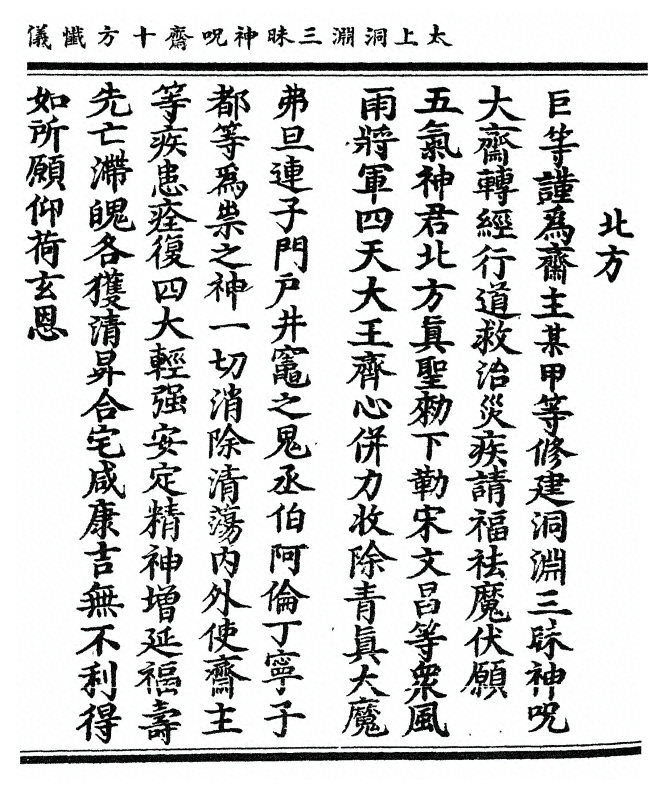 太上洞淵三昧神呪齋十方懺儀
北方
臣等謹為齋主某甲等修建洞淵三昧神呪
大齋轉經行道救治災疾請福祛魔伏願
五氣神君北方真聖勑下勒宋文昌等衆風
雨將軍四天大王齊心併力收除青真大魔
弗旦連子門戸井竈之鬼丞伯阿倫丁寧子
都等為祟之神一切消除清蕩内外使齋主
等疾患痊復四大輕强安定精神增延福壽
先亡滯魄各獲清昇合宅咸康吉無不利得
如所願仰荷玄恩